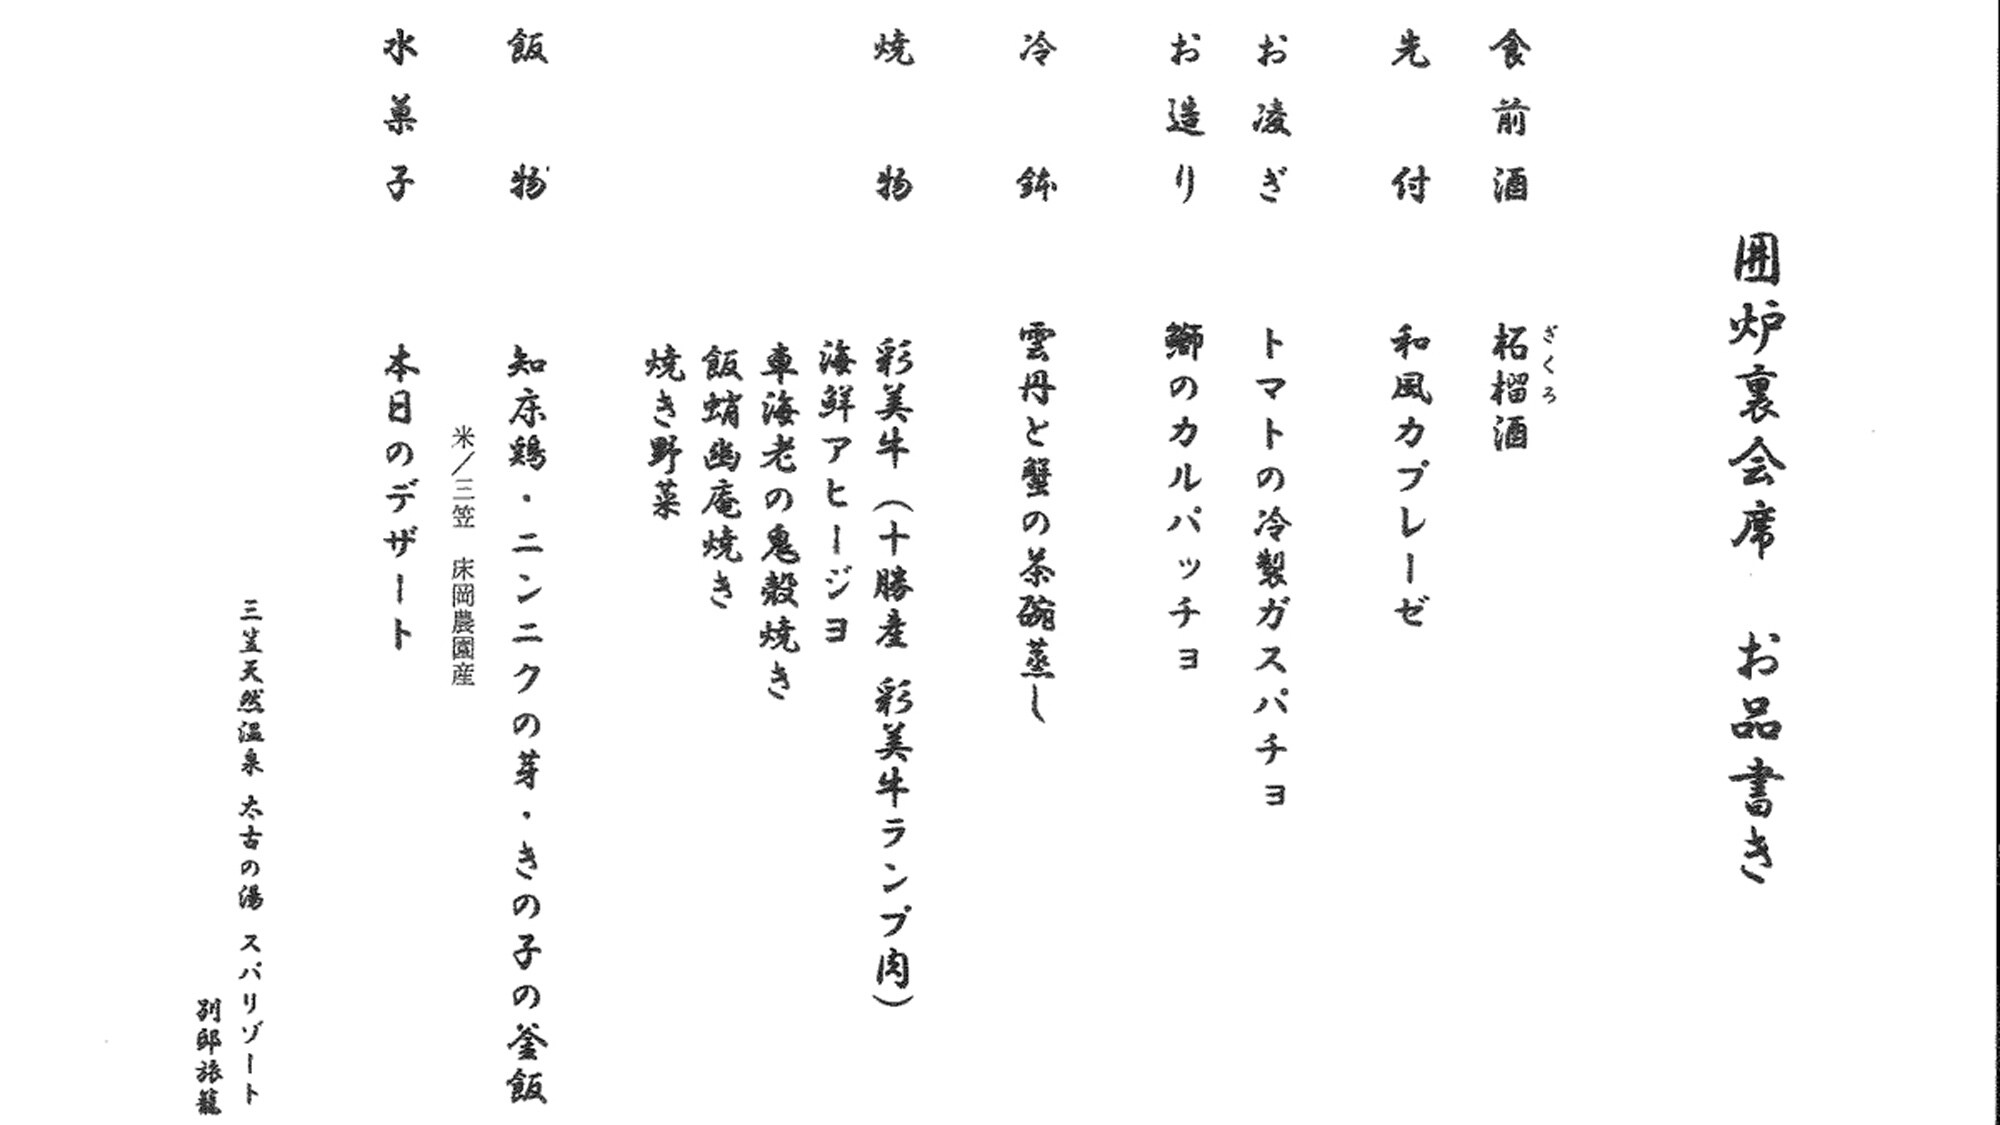 囲炉裏会席 お品書き
食前酒 柘榴酒
ざくろ
先付 和風カプレーゼ
お凌ぎ トマトの冷製ガスパチョ
お造り 鰤のカルパッチョ
冷鉢 雲丹と蟹の茶碗蒸し
焼物 彩美牛（十勝産 彩美牛ランプ肉）
海鮮アヒージョ
車海老の鬼殻焼き
飯蛸幽庵焼き
焼き野菜
飯物 知床鶏・ニンニクの芽・きの子の釜飯
米／三笠 床岡農園産
水菓子 本日のデザート
三笠天然温泉 太古の湯 スパリゾート
別邸旅籠